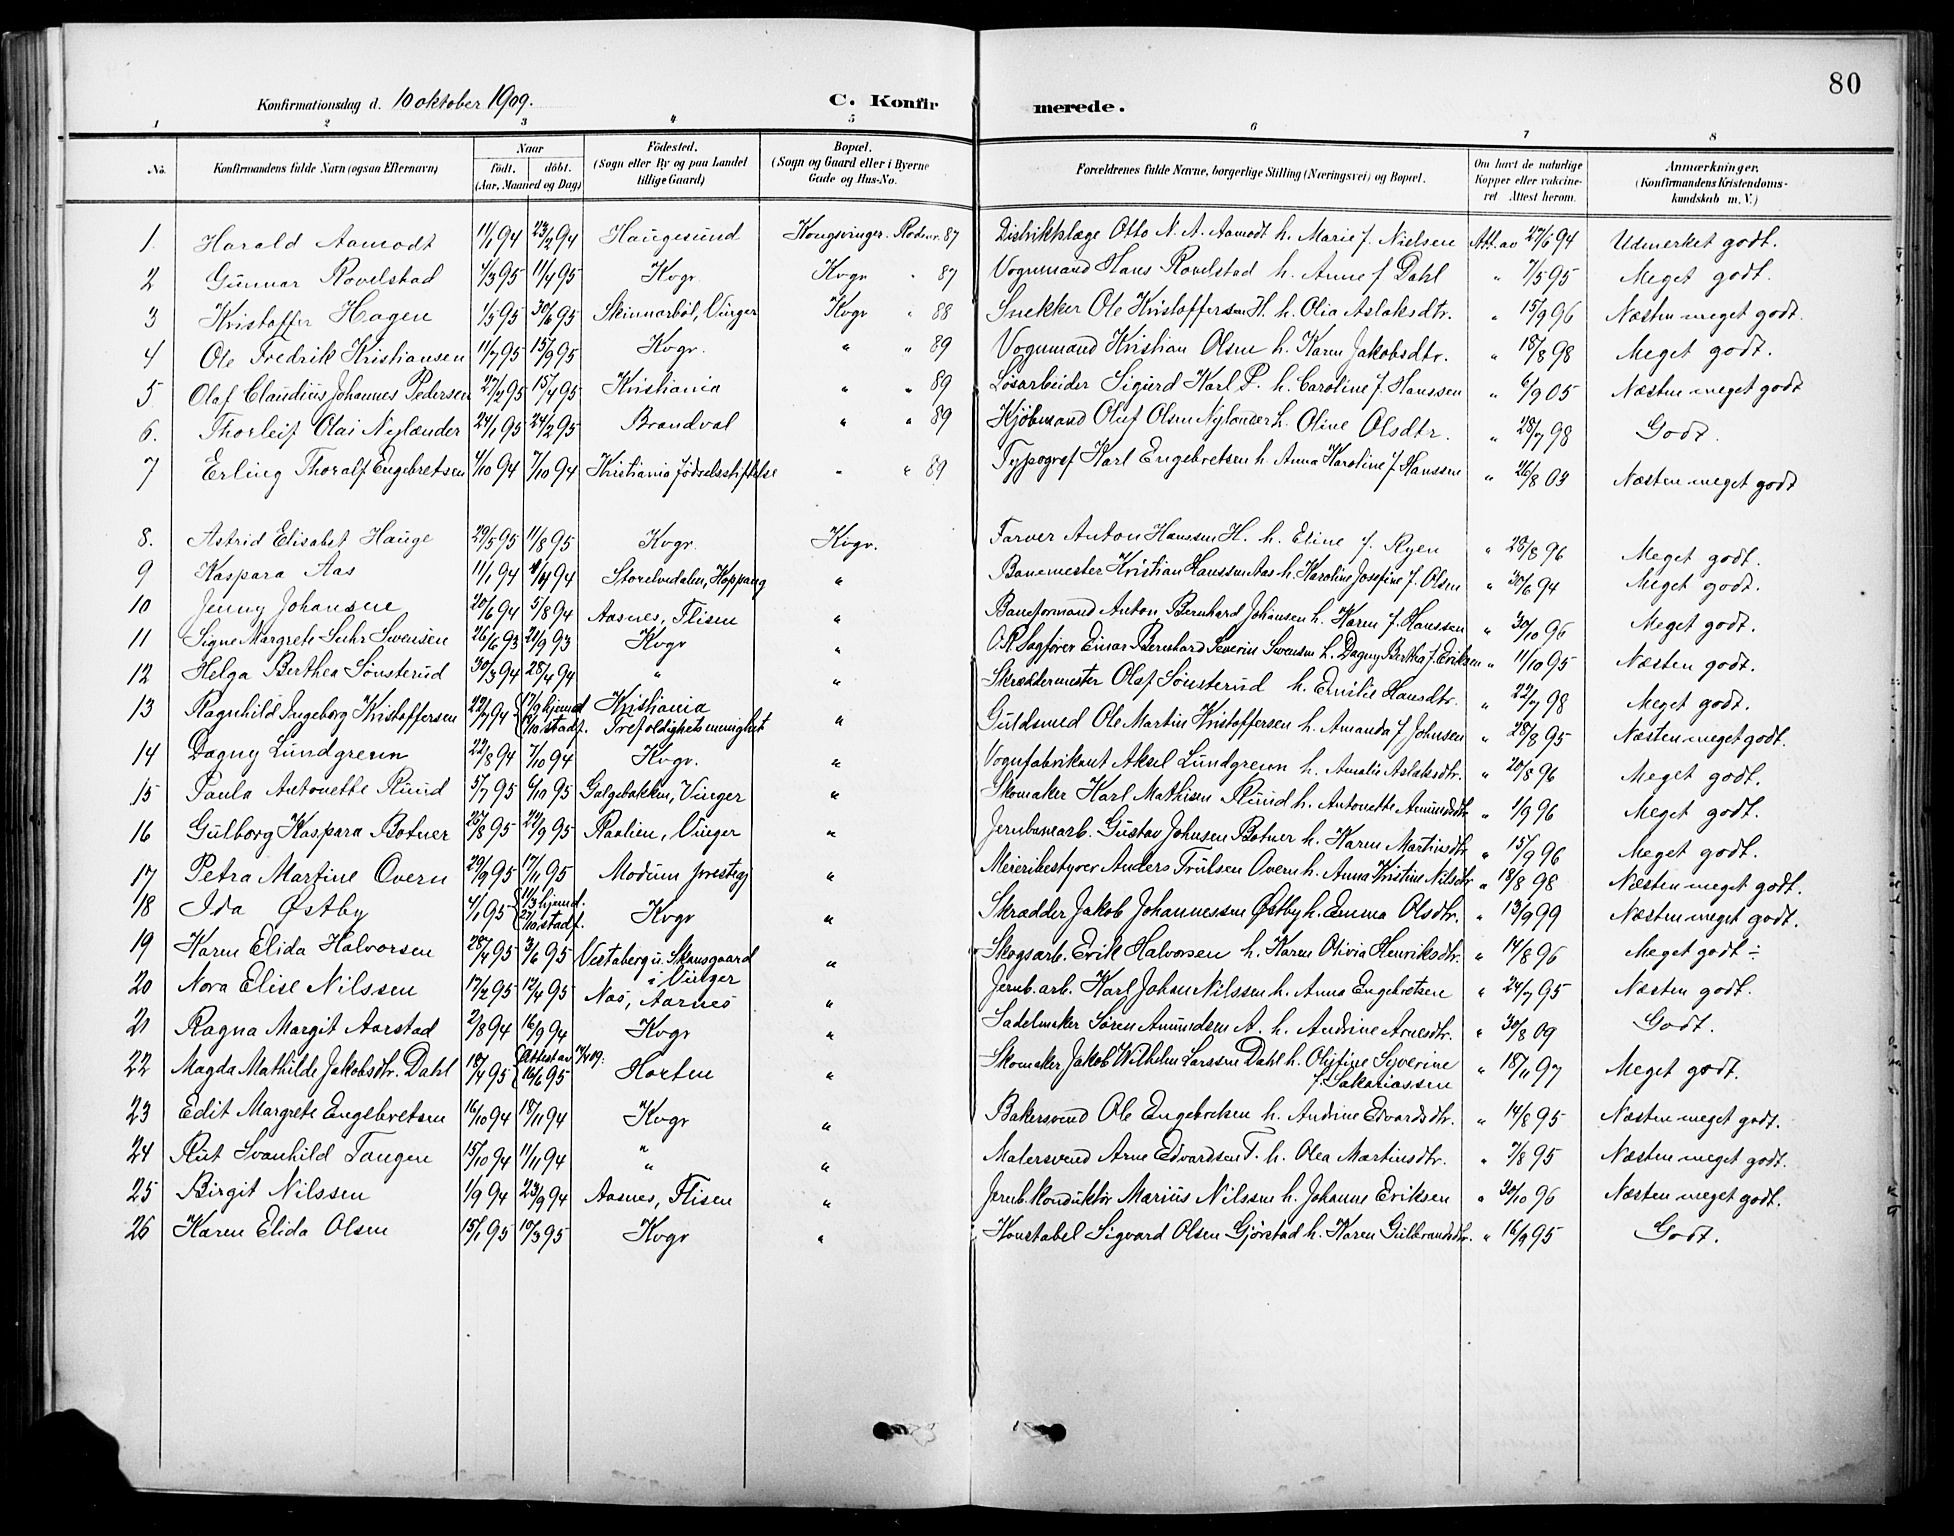 80
Konfirmationsdag d. 10 oktober 1909. C. Konfirmerede.
1 2 3 4 5 6 7 8
No. Konfirmandens fulde Navn (ogsaa Efternavn) Naar födt. döbt. (Aar, Maaned og Dag) Födested. (Sogn eller By og paa Landet tillige Gaard) Bopæl. (Sogn og Gaard eller i Byerne Gade og Hus-No. Forældrenes fulde Navne, borgerlige Stilling (Næringsvei) og Bopæl. Om havt de naturlige Kopper eller vakcineret Attest herom. Anmærkninger. (Konfirmandens Kristendomskundskab m. V.)
1. Harald Aamodt 11/1 94 23/2 94 Haugesund Kongsvinger. Rodenr. 87 Distriktslæge Otto N. A. Aamodt h. Marie f. Nielsen Att. av 27/6 94 Udmerket godt.
2 Gunnar Rovelstad 4/3 95 11/4 95 Kvgr. Kvgr " 87 Vognmand Hans Rovelstad h. Anne f Dahl " 7/5 95 Meget godt.
3 Kristoffer Hagen 1/5 95 30/6 95 Skinnarböl, Vinger Kvgr " 88 Snekker Ole Kristoffersen H. h. Olia Aslaksdtr. " 15/9 96 Næsten meget godt.
4 Ole Fredrik Kristiansen 11/7 95 15/9 95 Kvgr. " " 89 Vognmand Kristian Olsen h. Karen Jakobsdtr. " 18/8 98 Meget godt.
5 Olaf Claudius Johannes Pedersen 27/2 95 15/4 95 Kristiania " " 89 Løsarbeider Sigurd Karl P. h. Caroline f. Hanssen " 6/9 05 Næsten meget godt
6. Thorleif Olai Nylænder 24/1 95 24/2 95 Brandval " " 89 Kjöbmand Oluf Olsen Nylænder h. Oline Olsdtr. " 28/7 98 Godt.
7 Erling Thoralf Engebretsen 4/10 94 7/10 94 Kristiania Födselsstiftelse " " 89 Typograf Karl Engebretsen h. Anna Karoline f. Hanssen " 26/8 03 Næsten meget godt
8. Astrid Elisabet Hauge 29/5 95 11/8 95 Kvgr. Kvgr. Farver Anton Hanssen H. h. Eline f. Ryen " 28/8 96 Meget godt.
9 Kaspara Aas 11/1 94 /4 94 Storelvedalen, Koppang " Banemester Kristian Hanssen Aas h. Karoline Josefine f. Olsen " 30/6 94 Meget godt.
10 Jenny Johansen 20/6 94 5/8 94 Aasnes, Flisen " Baneformand Anton Bernhard Johansen h. Karen f. Hanssen " 30/10 96 Meget godt.
11 Signe Margrete Suhr Swensen 26/6 93 21/9 93 Kvgr " O.R. Sagförer Einar Bernhard Severin Swensen h. Dagny Berthea f. Eriksen " 11/10 95 Næsten godt.
12 Helga Berthea Sønsterud 30/3 94 28/4 94 " " Skræddermester Olaf Sønsterud h. Emilie Hansdtr. " 22/7 98 Meget godt.
13 Ragnhild Ingeborg Kristoffersen 22/7 94 17/9 hjemd. /10 stadf. Kristiania Trefoldighets menighet " Guldsmed Ole Martin Kristoffersen h. Amanda f Johnsen " 28/8 95 Næsten meget godt.
14 Dagny Lundgreen 22/8 94 7/10 94 Kvgr. " Vognfabrikant Aksel Lundgreen h. Amalie Aslaksdtr. " 20/8 96 Meget godt.
15 Paula Antonette Ruud 5/7 95 6/10 95 Galgebakken, Vinger " Skomaker Karl Mathisen Ruud h. Antonette Amundsdtr " 1/9 96 Meget godt.
16 Gulborg Kaspara Botner 25/8 95 22/9 95 Raalien, Vinger " Jernbanearb. Gustav Johnsen Botner h. Karen Martinsdtr " 15/9 96 Meget godt.
17 Petra Martine Overn 29/9 95 17/11 95 Modum prestegj " Meieribestyrer Anders Trulsen Overn h. Anna Kristine Nilsdtr " 18/8 98 Næsten meget godt.
18 Ida Østby 4/1 95 11/3 hjemd. 27/10 stadf. Kvgr " Skrædder Jakob Johannessen Østby h. Emma Olsdtr. " 13/9 99 Næsten meget godt.
19 Karen Elida Halvorsen 28/4 95 3/6 95 Vestaberg u. Skansgaard i Vinger " Skogsarb. Erik Halvorsen h. Karen Olivia Henriksdtr. " 14/8 96 Meget godt ÷
20 Nora Elise Nilssen 17/2 95 12/4 95 Nes, Aarnes " Jernb.arb. Karl Johan Nilssen h. Anna Engebretsen " 24/7 95 Næsten godt.
21 Ragna Margit Aarstad 2/8 94 16/9 94 Kvgr " Sadelmaker Søren Amundsen A. h. Andrine Arnesdtr. " 30/8 09 Godt.
22 Magda Mathilde Jakobsdtr. Dahl 18/4 95 Attest av /4 09. 16/6 95 Horten " Skomaker Jakob Wilhelm Larssen Dahl h. Olufine Syverine f. Sakariassen " 18/11 97 Meget godt.
23 Edit Margrete Engebretsen 16/10 94 18/11 94 Kvgr " Bakersvend Ole Engebretsen h. Andrine Edvardsdtr. " 14/8 95 Næsten meget godt.
24 Rut Svanhild Tangen 15/10 94 11/11 94 " " Malersvend Arne Edvardsen T. h. Olea Martinsdtr. " 7/8 95 Næsten meget godt.
25 Birgit Nilssen 1/9 94 23/9 94 Aasnes, Flisen " Jernb.konduktör Marius Nilssen h. Johanne Eriksen " 30/10 96 Næsten meget godt.
26 Karen Elida Olsen 15/1 95 10/3 95 Kvgr " Konstabel Sigvard Olsen Gjørstad h. Karen Gulbrandsdtr. " 16/9 95 Godt.